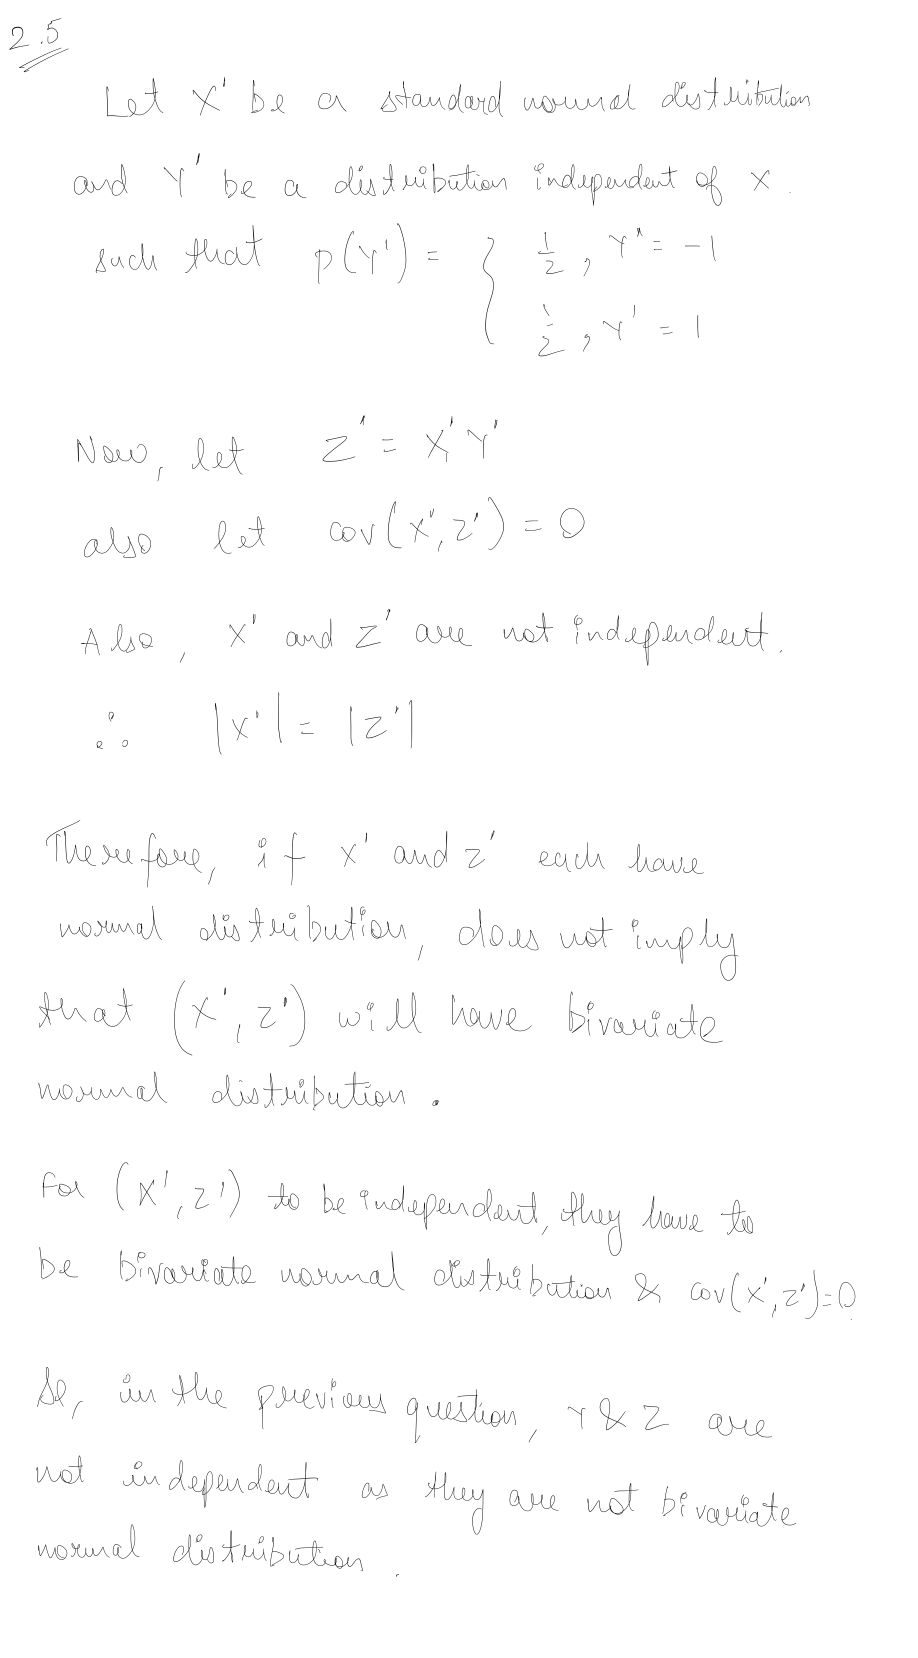 2.5
Let X' be a standard normal distribution
and Y' be a distribution independent of X.
such that p(Y') = { 1/2, Y' = -1
1/2, Y' = 1
Now, let Z' = X'Y'
also let cov(X', Z') = 0
Also, X' and Z' are not independent.
∴ |X'| = |Z'|
Therefore, if X' and Z' each have
normal distribution, does not imply
that (X', Z') will have bivariate
normal distribution.
For (X', Z') to be independent, they have to
be bivariate normal distribution & cov(X', Z')=0.
So, in the previous question, Y & Z are
not independent as they are not bivariate
normal distribution.